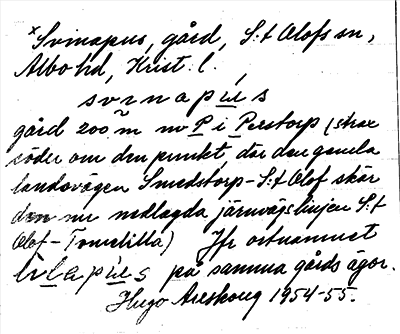 ×Svinapus, gård, S:t Olofs sn,
Albo hd, Krist. l.
svinapu̲s
gård 200 m nv P i Perstorp (strax
söder om den punkt, där den gamla
landsvägen Smedstorp-S:t Olof skär
den nu nedlagda järnvägslinjen S:t
Olof-Tomelilla) Jfr ortnamnet
lilapu̲s på samma gårds ägor.
Hugo Areskoug 1954-55.